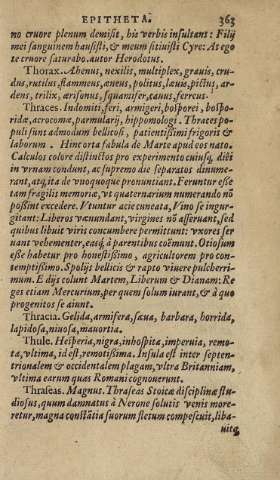 EPITHETA. 363
no cruore plenum demisit, his verbis insultans: Filij
mei sanguinem hausisti, & meum sitiuisti Cyre: At ego
te cruore saturabo. autor Herodotus.
Thorax. Ahenus, nexilis, multiplex, grauis, cru-
dus, rutilus, flammeus, æneus, politus, læuis, pictus, ar
dens, trilix, ærisonus, squamifer, cauus, ferreus.
Thraces. Indomiti, feri, armigeri, bosporei, bospo-
ridæ, acrocomæ, parmularij, hippomologi. Thraces po-
puli sunt admodum bellicosi, patientissimi frigoris &
laborum. Hinc orta fabula de Marte apud eos nato.
Calculos colore distinctos pro experimento cuiusq, diei
in vrnam condunt, ac supremo die separatos dinume-
rant, atq, ita de vnoquoque pronuntiant. Feruntur esse
tam fragilis memoriæ, vt quaternarium numerando nõ
possint excedere. Vtuntur acie cuneata, Vino se ingur-
gitant: Liberos vænundant, virgines nõ asseruant, sed
quibus libuit viris concumbere permittunt: vxores ser
uant vehementer, easq́, à parentibus coëmunt. Otiosum
esse habetur pro honestissimo, agricultorem pro con-
temptissimo. Spolijs bellicis & rapto viuere pulcherri-
mum. E dijs colunt Martem, Liberum & Dianam: Re
ges etiam Mercurium, per quem solum iurant, & à quo
progenitos se aiunt.
Thracia. Gelida, armifera, sæua, barbara, horrida,
lapidosa, niuosa, mauortia.
Thule. Hesperia, nigra, inhospita, imperuia, remo-
ta, vltima, id est, remotissima. Insula est inter septen-
trionalem & occidentalem plagam, vltra Britanniam,
vltima earum quas Romani cognouerunt.
Thraseas. Magnus. Thraseas Stoicæ disciplinæ stu-
diosus, quum damnatus à Nerone solutis venis more-
retur, magna constãtia suorum fletum compescuit, liba-
uitq́,